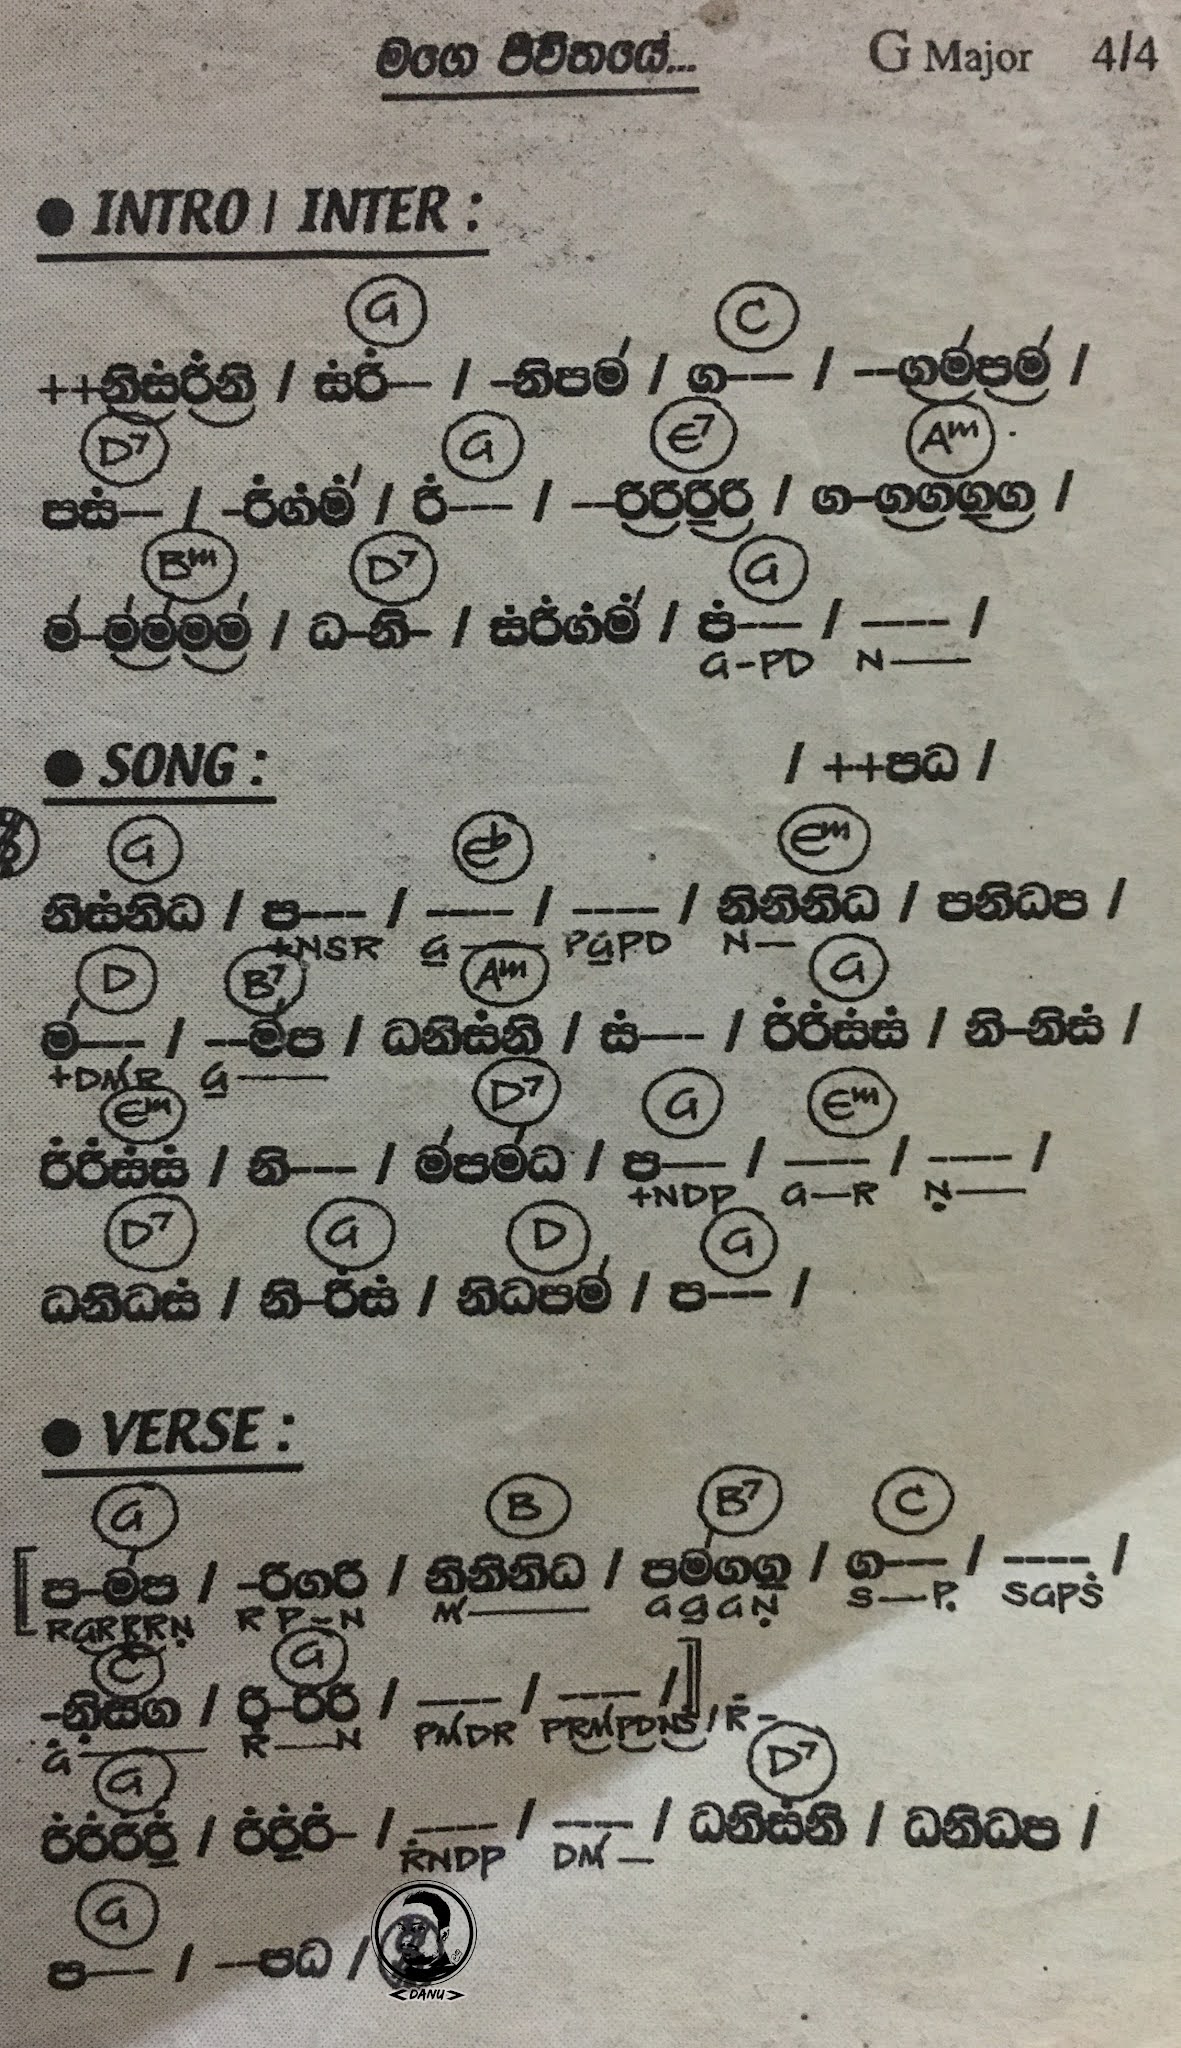 මගෙ ජීවිතයේ... G Major 4/4
● INTRO / INTER :
G C
++නිස්රි්නි / ස්රි්-- / -නිපම් / ග--- / --ගම්පම් /
D7 G E7 Am
පස්-- / -රි්ග්ම් / රි්--- / --රිරිරිරි / ග-ගගගග /
Bm D7 G
ම්-ම්ම්මම් / ධ-නි- / ස්රි්ග්ම් / ප්--- / ---- /
G-PD N——
● SONG : / ++පධ /
G Eb Em
නිස්නිධ / ප--- / ---- / ---- / නිනිනිධ / පනිධප /
+NSR G—— PGPD N—
D B7 Am G
ම්--- / --ම්ප / ධනිස්නි / ස්--- / රි්රි්ස්ස් / නි-නිස් /
+DMR G——
Em D7 G Em
රි්රි්ස්ස් / නි--- / ම්පම්ධ / ප--- / ---- / ---- /
+NDP G—R Ṇ——
D7 G D G
ධනිධස් / නි-රි්ස් / නිධපම් / ප--- /
● VERSE :
G B B7 C
[ ප-ම්ප / -රිගරි / නිනිනිධ / පම්ගගු / ග--- / ---- /
RGRRRṆ R P-N M—— GGGṆ S—P̣ SGPṠ
C G
-නිසග / රි-රිරි / ---- / ---- / ]
Ġ—— Ṙ—N PMDR PRMPDNṠ / Ṙ-
G D7
රි්රි්රි්රි් / රි්රි්රි්- / ---- / ---- / ධනිස්නි / ධනිධප /
ṘNDP DM—
G
ප--- / --පධ /
<DANU>